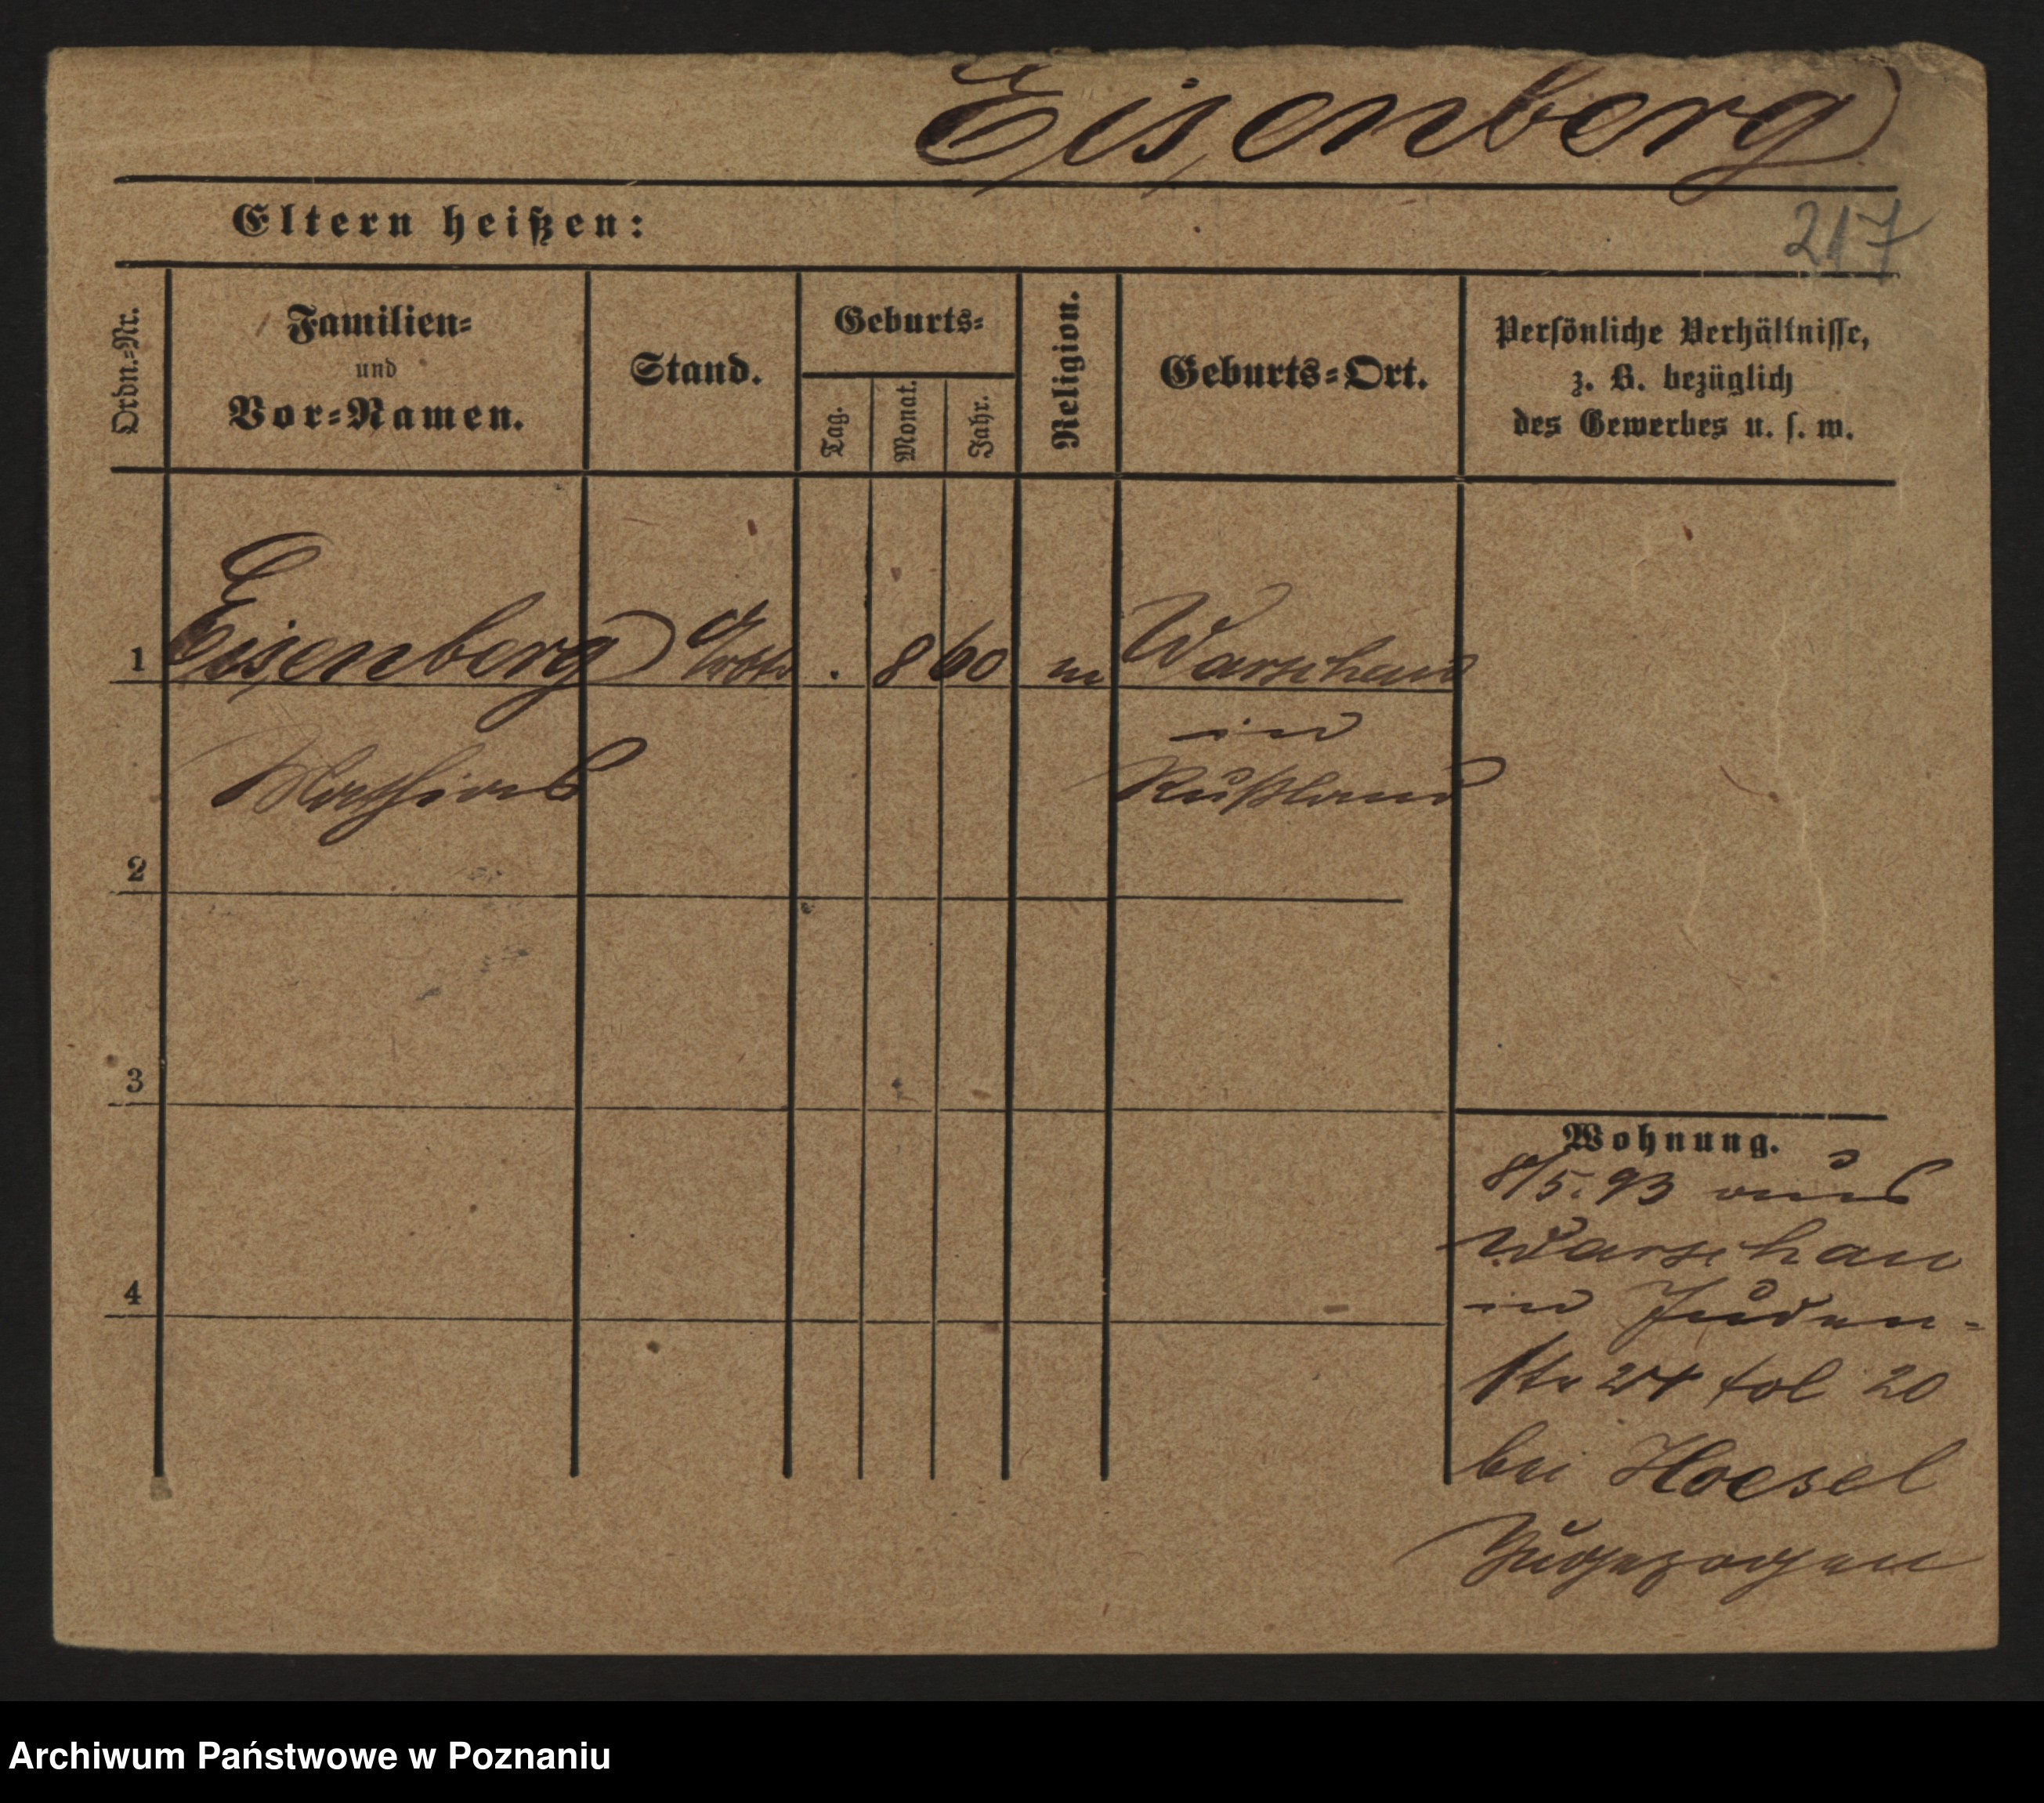 Eisenberg
Eltern heißen:
217
Ordn.-Nr.
Familien-
und
Vor-Namen.
Stand.
Geburts-
Tag.
Monat.
Jahr.
Religion.
Geburts-Ort.
Persönliche Verhältnisse,
z. B. bezüglich
des Gewerbes u. s. w.
1 Eisenberg . 8 60 m Warschau
in
Mathias Rußland
2
3
4
Wohnung.
8/5. 93 aus
Warschau
in Juden-
str 24 fol 20
bei Hoesel
zugezogen
Archiwum Państwowe w Poznaniu